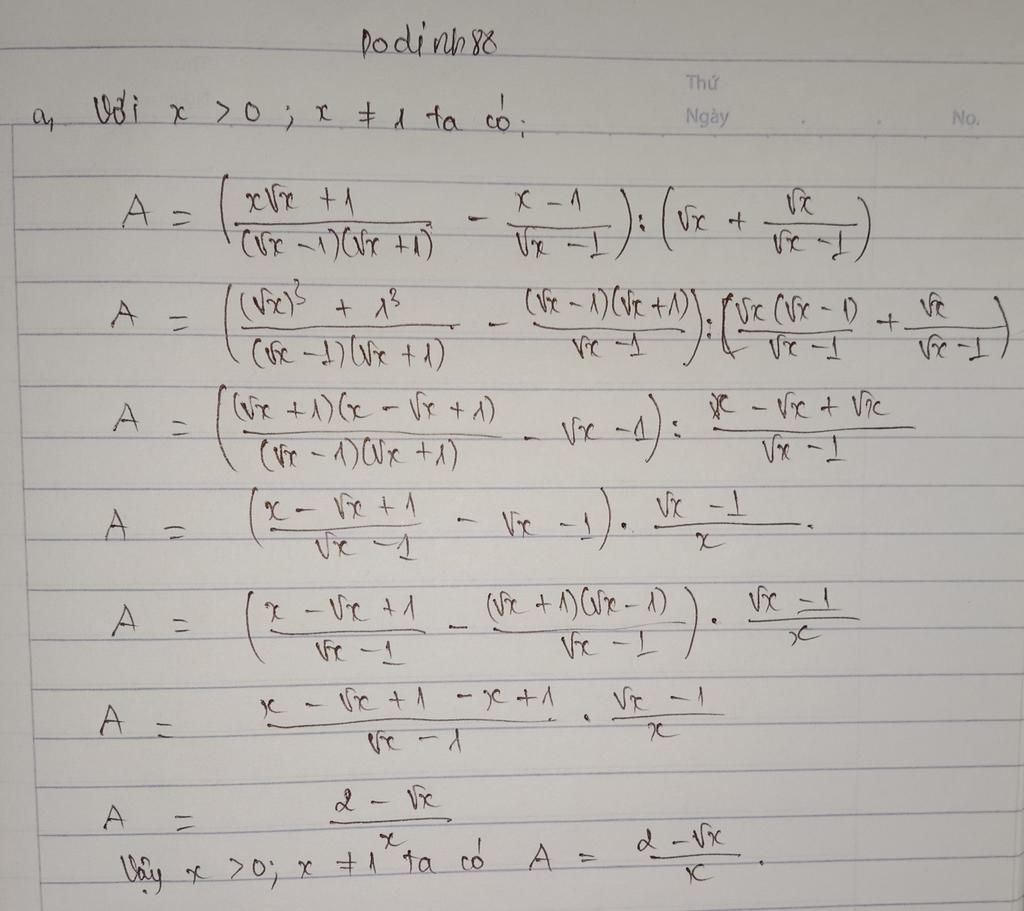 Dodinh88
Thứ
Ngày . . No.
a, Với x > 0 ; x ≠ 1 ta có:
A = ( (x√x + 1)/((√x - 1)(√x + 1)) - (x - 1)/(√x - 1) ) : ( √x + √x/(√x - 1) )
A = ( ((√x)³ + 1³)/((√x - 1)(√x + 1)) - ((√x - 1)(√x + 1))/(√x - 1) ) : ( (√x(√x - 1))/(√x - 1) + √x/(√x - 1) )
A = ( ((√x + 1)(x - √x + 1))/((√x - 1)(√x + 1)) - √x - 1 ) : (x - √x + √x)/(√x - 1)
A = ( (x - √x + 1)/(√x - 1) - √x - 1 ) . (√x - 1)/x .
A = ( (x - √x + 1)/(√x - 1) - ((√x + 1)(√x - 1))/(√x - 1) ) . (√x - 1)/x
A = (x - √x + 1 - x + 1)/(√x - 1) . (√x - 1)/x
A = (2 - √x)/x
Vậy x > 0; x ≠ 1 ta có A = (2 - √x)/x .